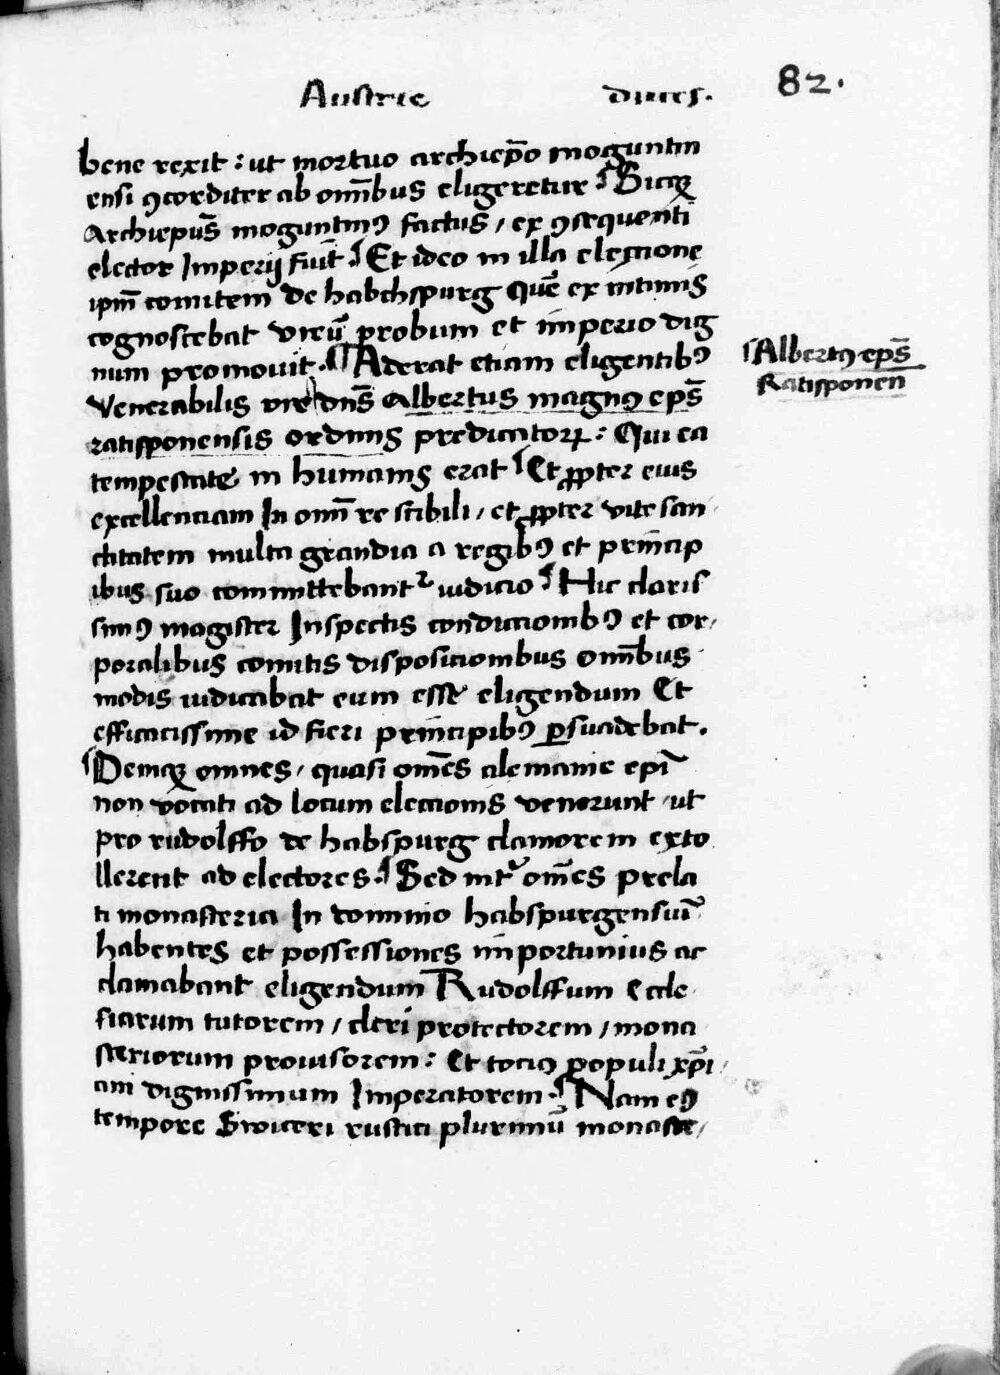 Austrie duces.
82.
bene rexit : ut mortuo archiep̄o moguntin
ensi ꝯcorditer ab om̄ibus eligeretur ¶ Sicq̷
Archiepūs moguntinꝰ factus / ex ꝯsequenti
elector Imperij fuit̄ ¶ Et ideo in illa elexione
ip̄m comitem de habchspurg que᷈ ex intimis
cognoscebat virū probum et imperio dig
num promouit . ¶ Aderat etiam eligentibꝰ
Venerabilis vir dn̄s Albertus magnꝰ ep̄s
ratisponensis ordinis predicatorꝝ : Qui ea
tempestate in humanis erat ¶ Et ꝓpter eius
excellenciam In om̄i re scibili / et ꝓpter vite san
ctitatem multa grandia a regibꝰ et princip
ibus suo committebantᷣ iudicio ¶ Hic claris
simꝰ magister Inspectis condicionibꝰ et cor/
poralibus comitis disposicionibus om̄ibus
modis iudicabat eum esse eligendum Et
efficacissime id fieri principibꝰ ꝑsuadebat .
¶ Deniq̷ omnes / quasi om̄es alemanie ep̄i
non vocati ad locum eleccionis venerunt / ut
pro rudolffo de habspurg clamorem exto
llerent ad electores . ¶ Sed intᷣ om̄es prela
ti monasteria In dominio habspurgensiū
habentes et possessiones importunius ac
clamabant eligendum Rudolffum Eccle
siarum tutorem / cleri protectorem / mona
steriorum prouisorem : Et tociꝰ populi xp̄i /
ani dignissimum Imperatorem . ¶ Nam eꝰ
tempore Swiceri rustici plurimū monaste /
¶ Albertꝰ ep̄s
Ratisponen̄